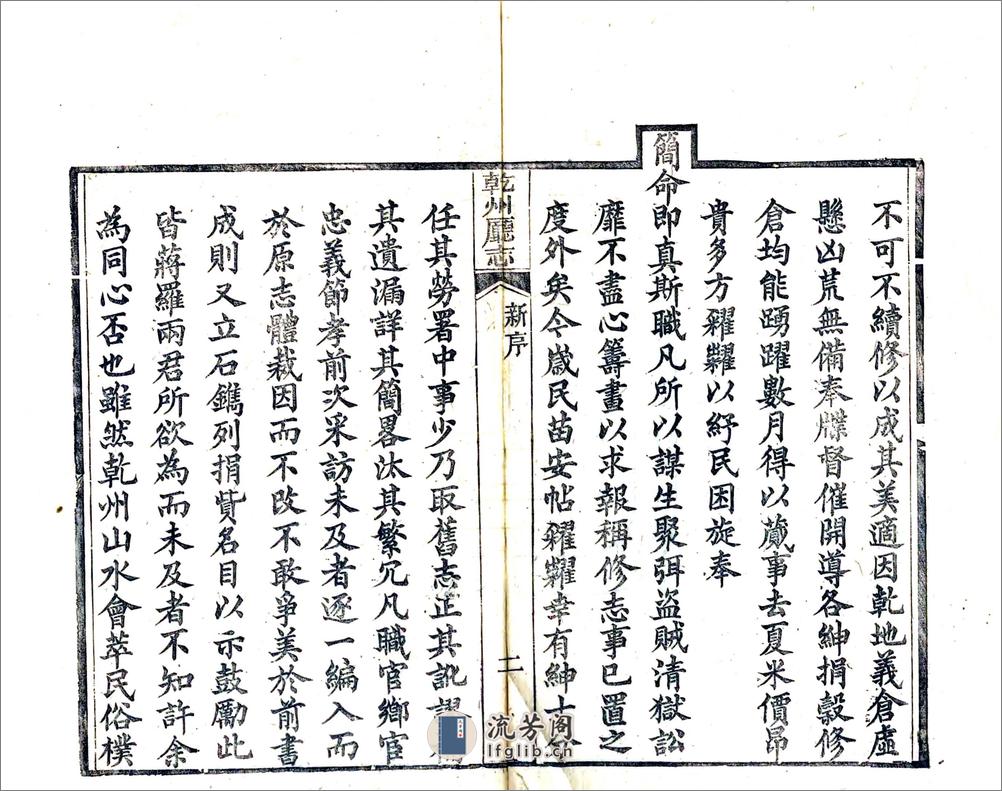 不可不續修以成其美適因乾地義倉虛
懸凶荒無備奉牒督催開導各紳捐穀修
倉均能踴躍數月得以蕆事去夏米價昂
貴多方糶糴以紓民困旋奉
簡命即真斯職凡所以謀生聚弭盜賊清獄訟
靡不盡心籌畫以求報稱修志事已置之
度外矣今歲民苗安帖糶糴幸有紳士分
乾州廳志
新序
二
任其勞署中事少乃取舊志正其訛謬
其遺漏詳其簡畧汰其繁冗凡職官鄉官
忠義節孝前次采訪未及者逐一編入而
於原志體裁因而不改不敢爭美於前書
成則又立石鐫列捐貲名目以示鼓勵此
皆蔣羅兩君所欲為而未及者不知許余
為同心否也雖然乾州山水會萃民俗樸
流芳阁
lfglib.cn